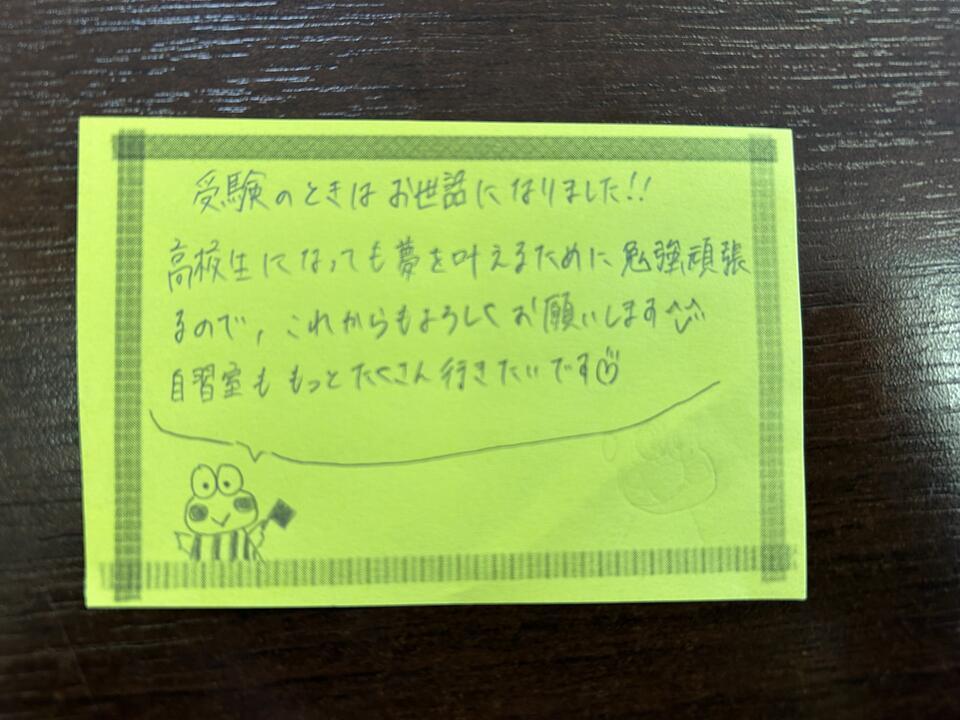 受験のときはお世話になりました!!
高校生になっても夢を叶えるために勉強頑張
るので、これからもよろしくお願いします^^
自習室ももっとたくさん行きたいです